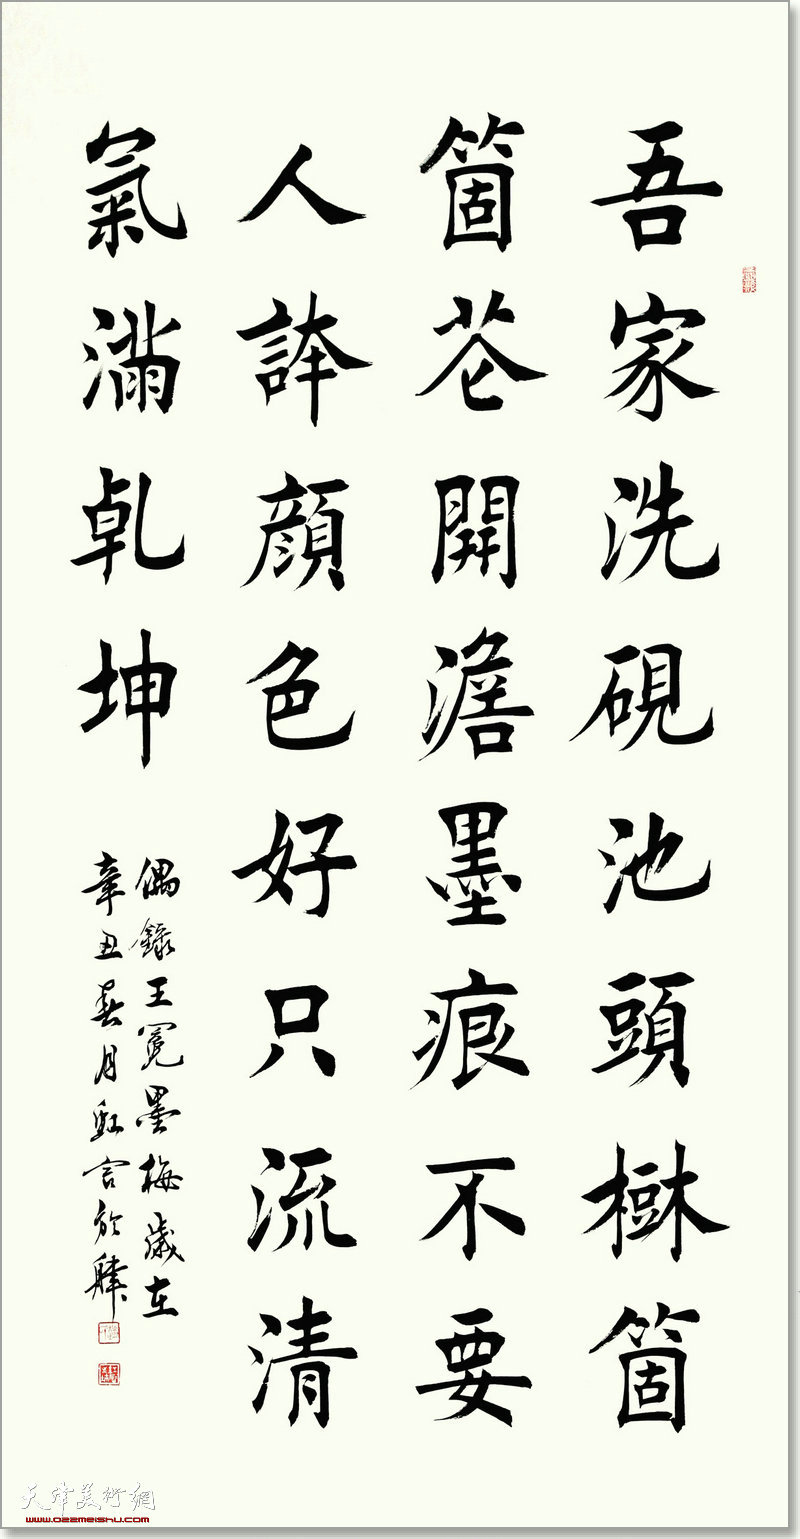 吾家洗硯池頭樹箇
箇花開澹墨痕不要
人誇顔色好只流清
氣滿乾坤
偶錄王冕墨梅歲在
辛丑春月言於
天津美術網
www.022meishu.com